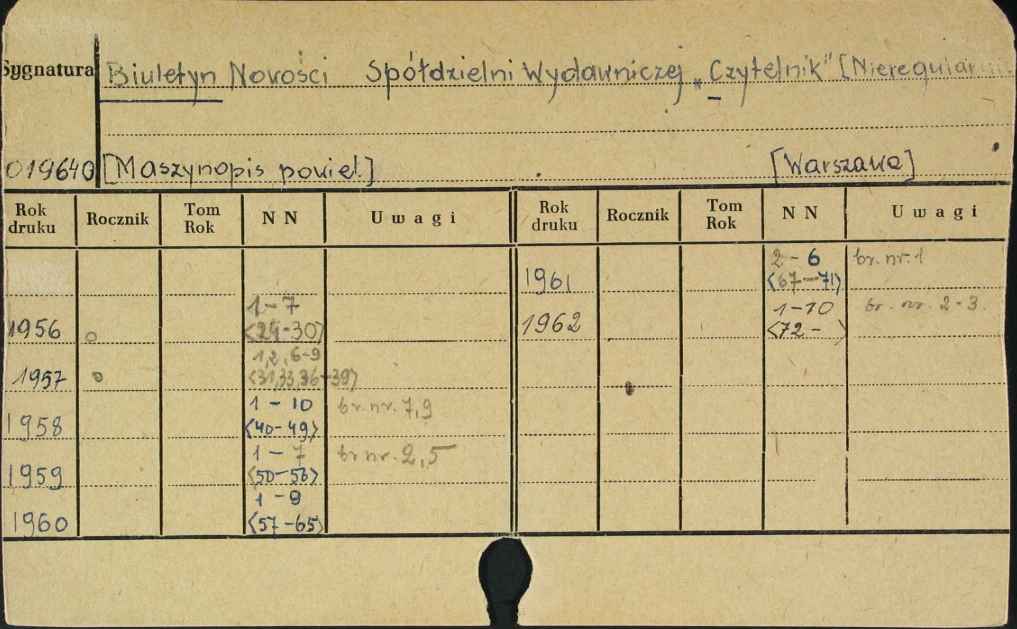 Sygnatura Biuletyn Nowości Spółdzielni Wydawniczej „Czytelnik" [Nieregularnik
019640 [Maszynopis powiel.] [Warszawa]
Rok druku Rocznik Tom Rok N N Uwagi Rok druku Rocznik Tom Rok N N Uwagi
1961 2-6 <67-71> br. nr. 1
1956 1-7 <24-30>
1962 1-10 <72- > br. nr. 2-3
1957 1,2,6-9 <31,33,36-39>
1958 1-10 <40-49> br. nr. 7,9
1959 1-7 <50-56> br nr. 2,5
1960 1-9 <57-65>